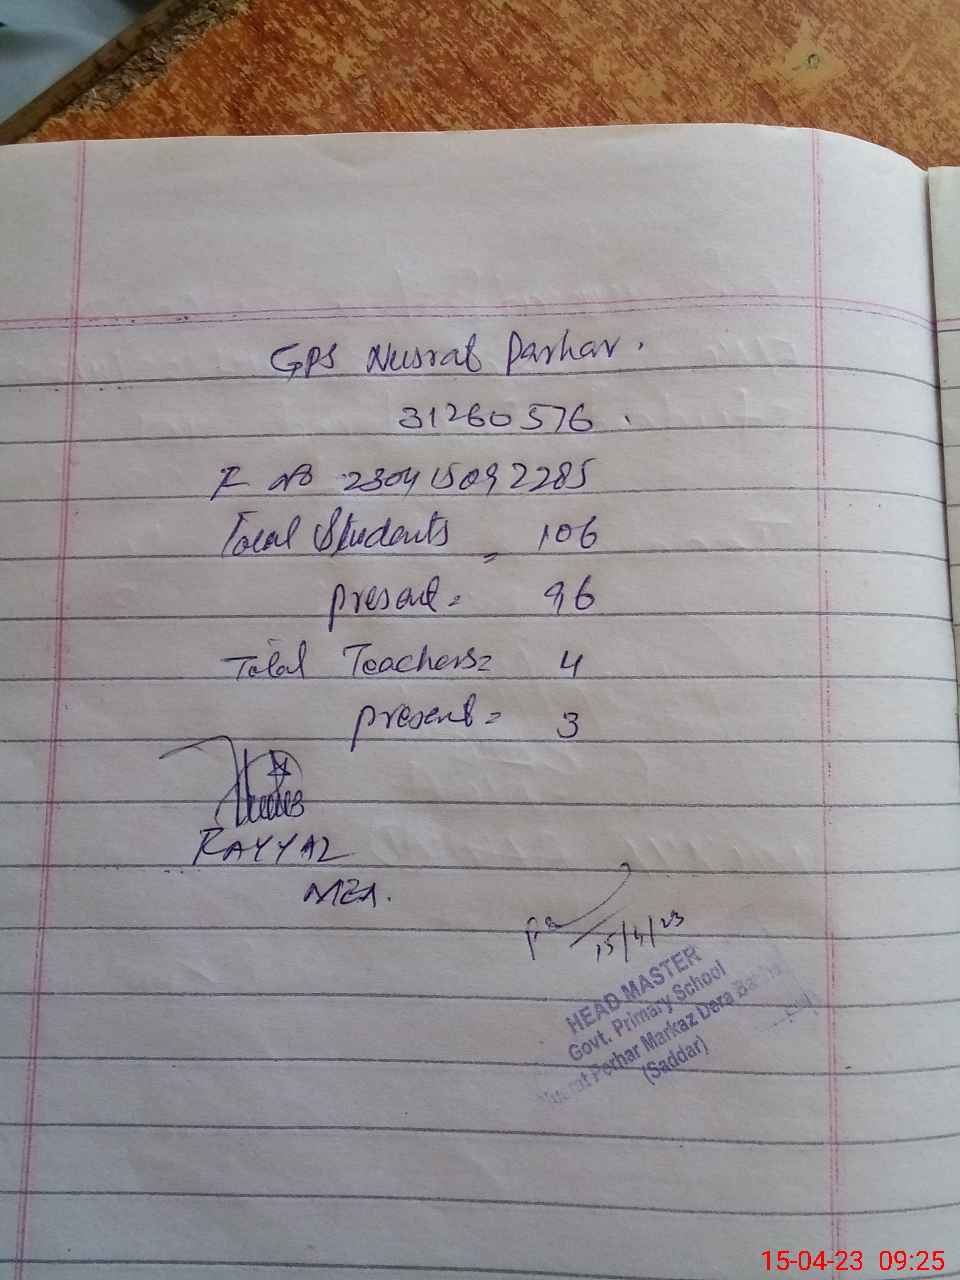 GPS Nusrat Parhar.
31260576.
R No 230415092285
Total Students = 106
present = 96
Total Teachers = 4
present = 3
RAYYAZ
MEA.
15/4/23
HEAD MASTER
Govt. Primary School
Nusrat Perhar Markaz Dera
(Saddar)
15-04-23 09:25